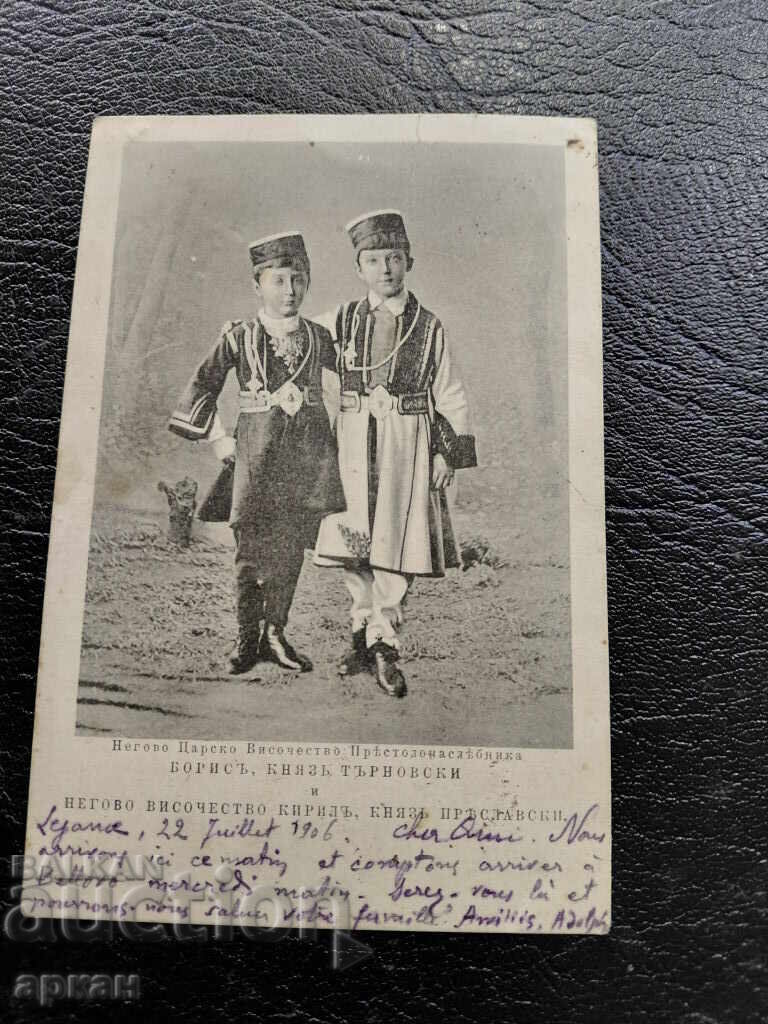 Негово Царско Височество Прѣстолонаслѣдника
БОРИСЪ, КНЯЗЬ ТЪРНОВСКИ
и
НЕГОВО ВИСОЧЕСТВО КИРИЛЪ, КНЯЗЬ ПРѢСЛАВСКИ
22 Juillet 1906. Cher Nous
arrivons ici ce matin et comptons arriver à
Bellovo mercredi matin. Serez-vous là et
pourrons-nous saluer votre famille? Amitiés, Adolph
BALKAN
auction
аркан